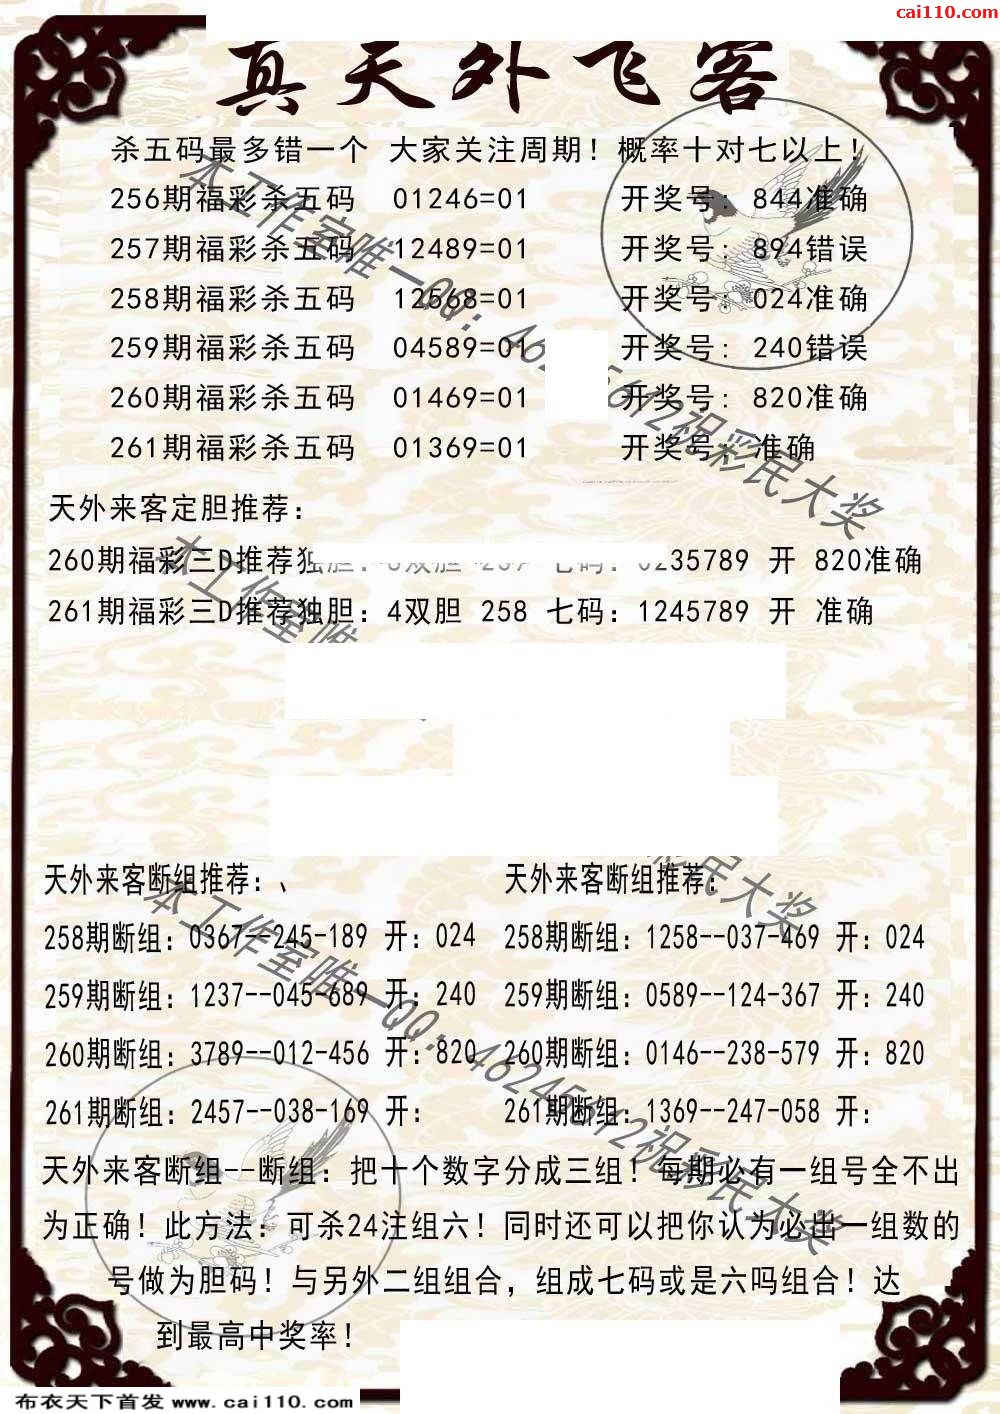 cai110.com
真天外飞客
杀五码最多错一个 大家关注周期！概率十对七以上！
256期福彩杀五码 01246=01 开奖号：844准确
257期福彩杀五码 12489=01 开奖号：894错误
258期福彩杀五码 12568=01 开奖号：024准确
259期福彩杀五码 04589=01 开奖号：240错误
260期福彩杀五码 01469=01 开奖号：820准确
261期福彩杀五码 01369=01 开奖号：准确
本工作室唯一QQ：46245612祝彩民大奖
天外来客定胆推荐：
260期福彩三D推荐独胆： 双胆 七码：0235789 开 820准确
261期福彩三D推荐独胆：4双胆 258 七码：1245789 开 准确
本工作室唯
彩民大奖
天外来客断组推荐：、 天外来客断组推荐：
258期断组：0367--245-189 开：024 258期断组：1258--037-469 开：024
259期断组：1237--045-689 开：240 259期断组：0589--124-367 开：240
260期断组：3789--012-456 开：820 260期断组：0146--238-579 开：820
261期断组：2457--038-169 开： 261期断组：1369--247-058 开：
本工作室唯一QQ：46245612祝彩民大奖
天外来客断组--断组：把十个数字分成三组！每期必有一组号全不出
为正确！此方法：可杀24注组六！同时还可以把你认为必出一组数的
号做为胆码！与另外二组组合，组成七码或是六吗组合！达
到最高中奖率！
布衣天下首发 www.cai110.com